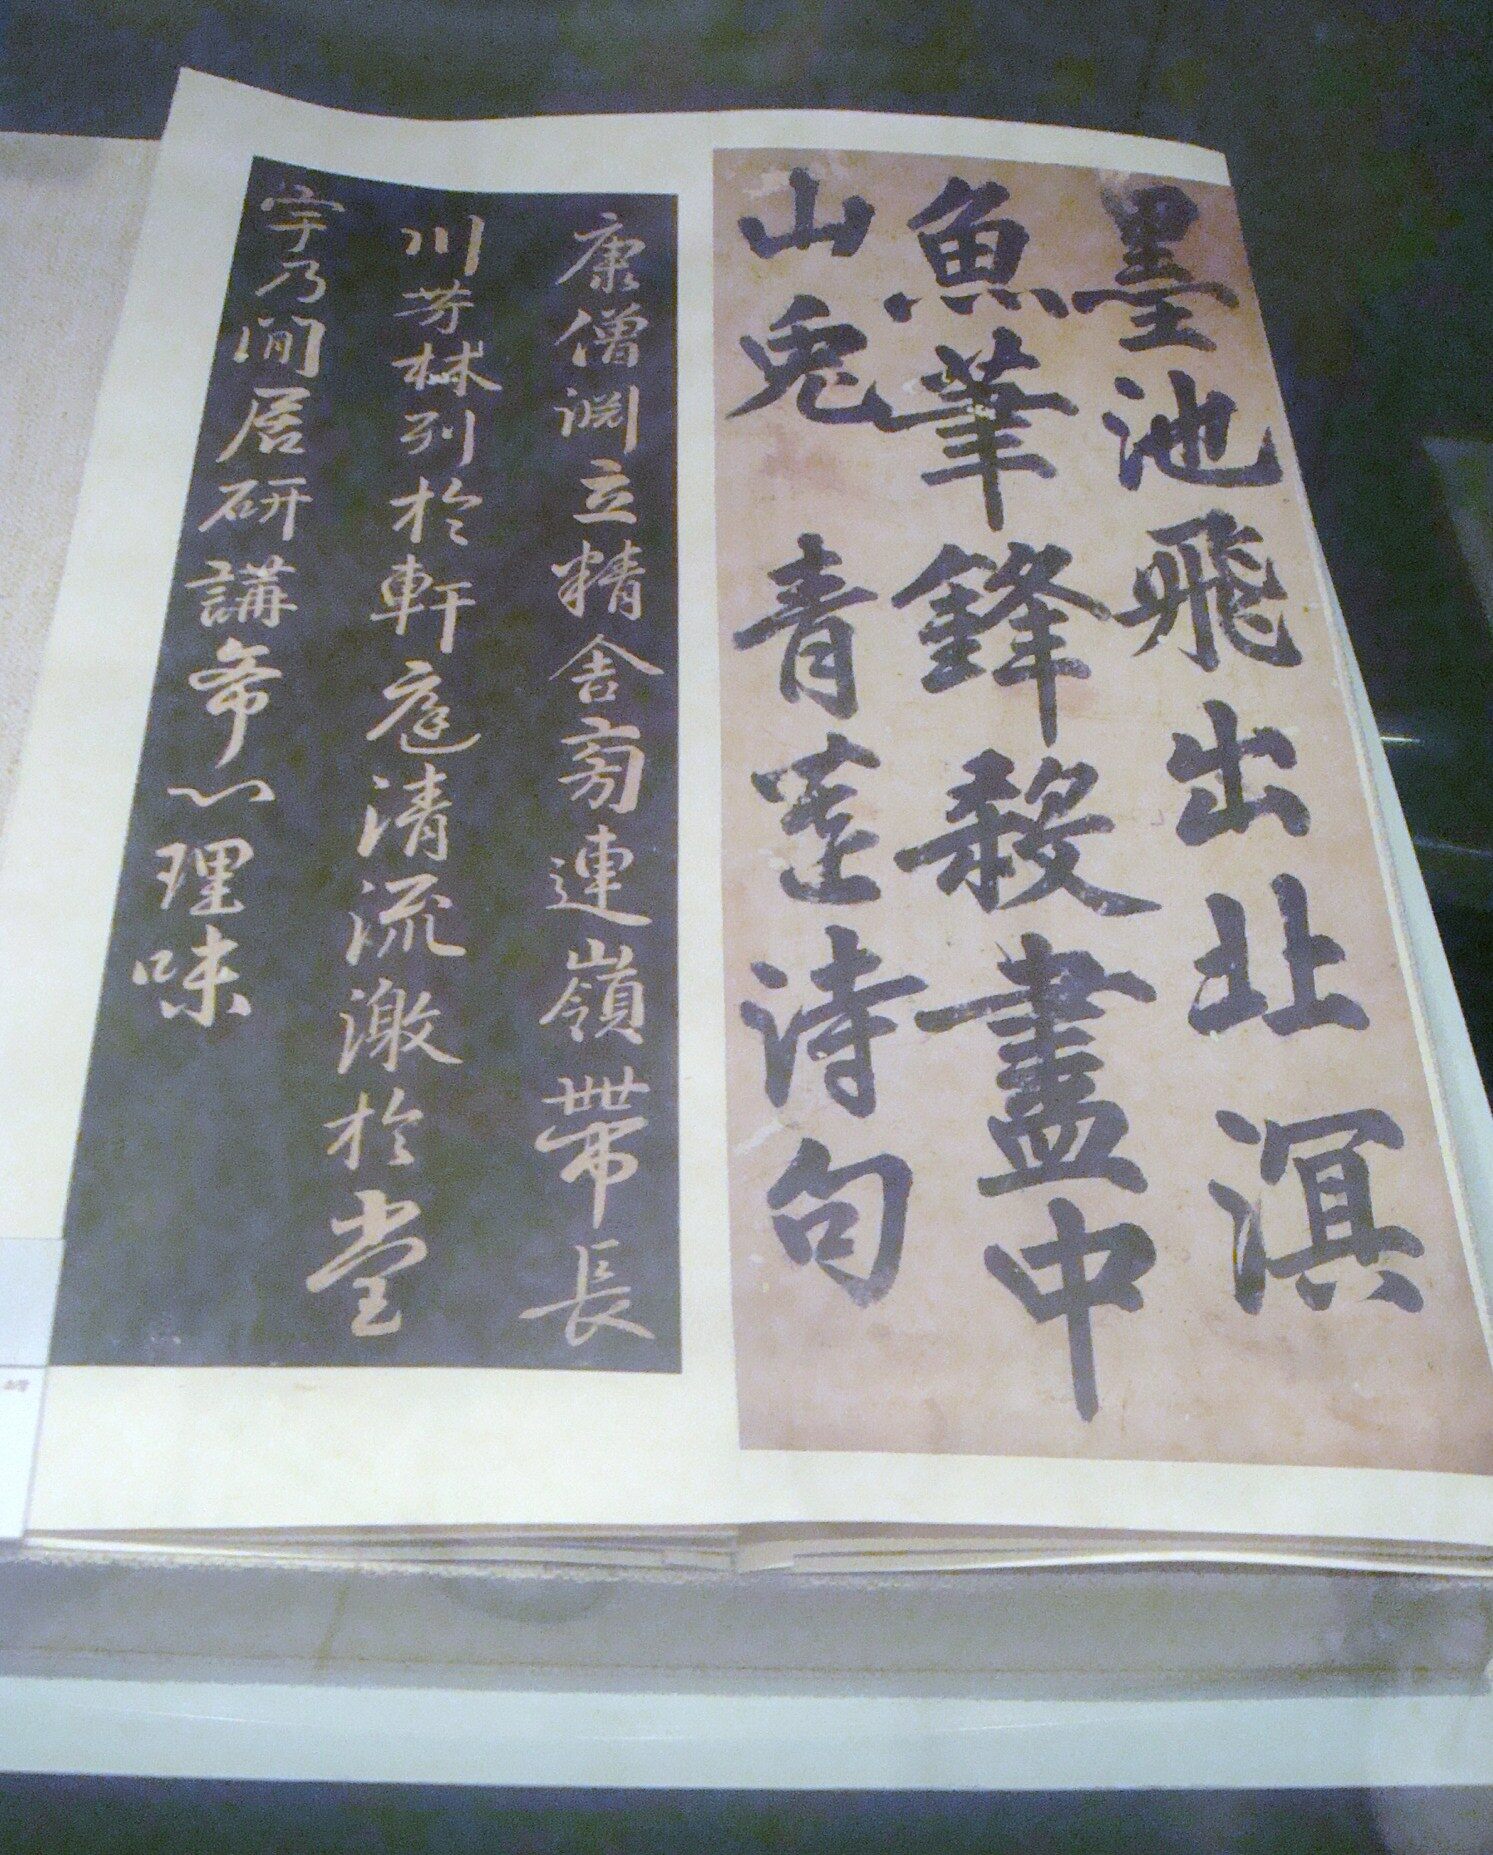 墨池飛出北溟
魚筆鋒殺盡中
山兔 青詩句
康僧淵立精舍旁連嶺帶長
川芳林列於軒庭清流激於堂
宇乃閒居研講希心理味